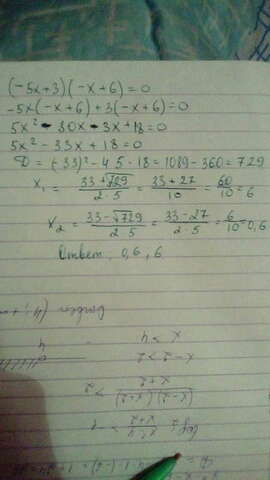 (-5x+3)(-x+6)=0
-5x(-x+6)+3(-x+6)=0
5x²-30x-3x+18=0
5x²-33x+18=0
D=(-33)²-4·5·18=1089-360=729
x₁=(33+√729)/(2·5)=(33+27)/10=60/10=6
x₂=(33-√729)/(2·5)=(33-27)/10=6/10=0,6
Ответ, 0,6, 6
x>4
x-2>2
(x-2)(x+2)/(x+2)>2